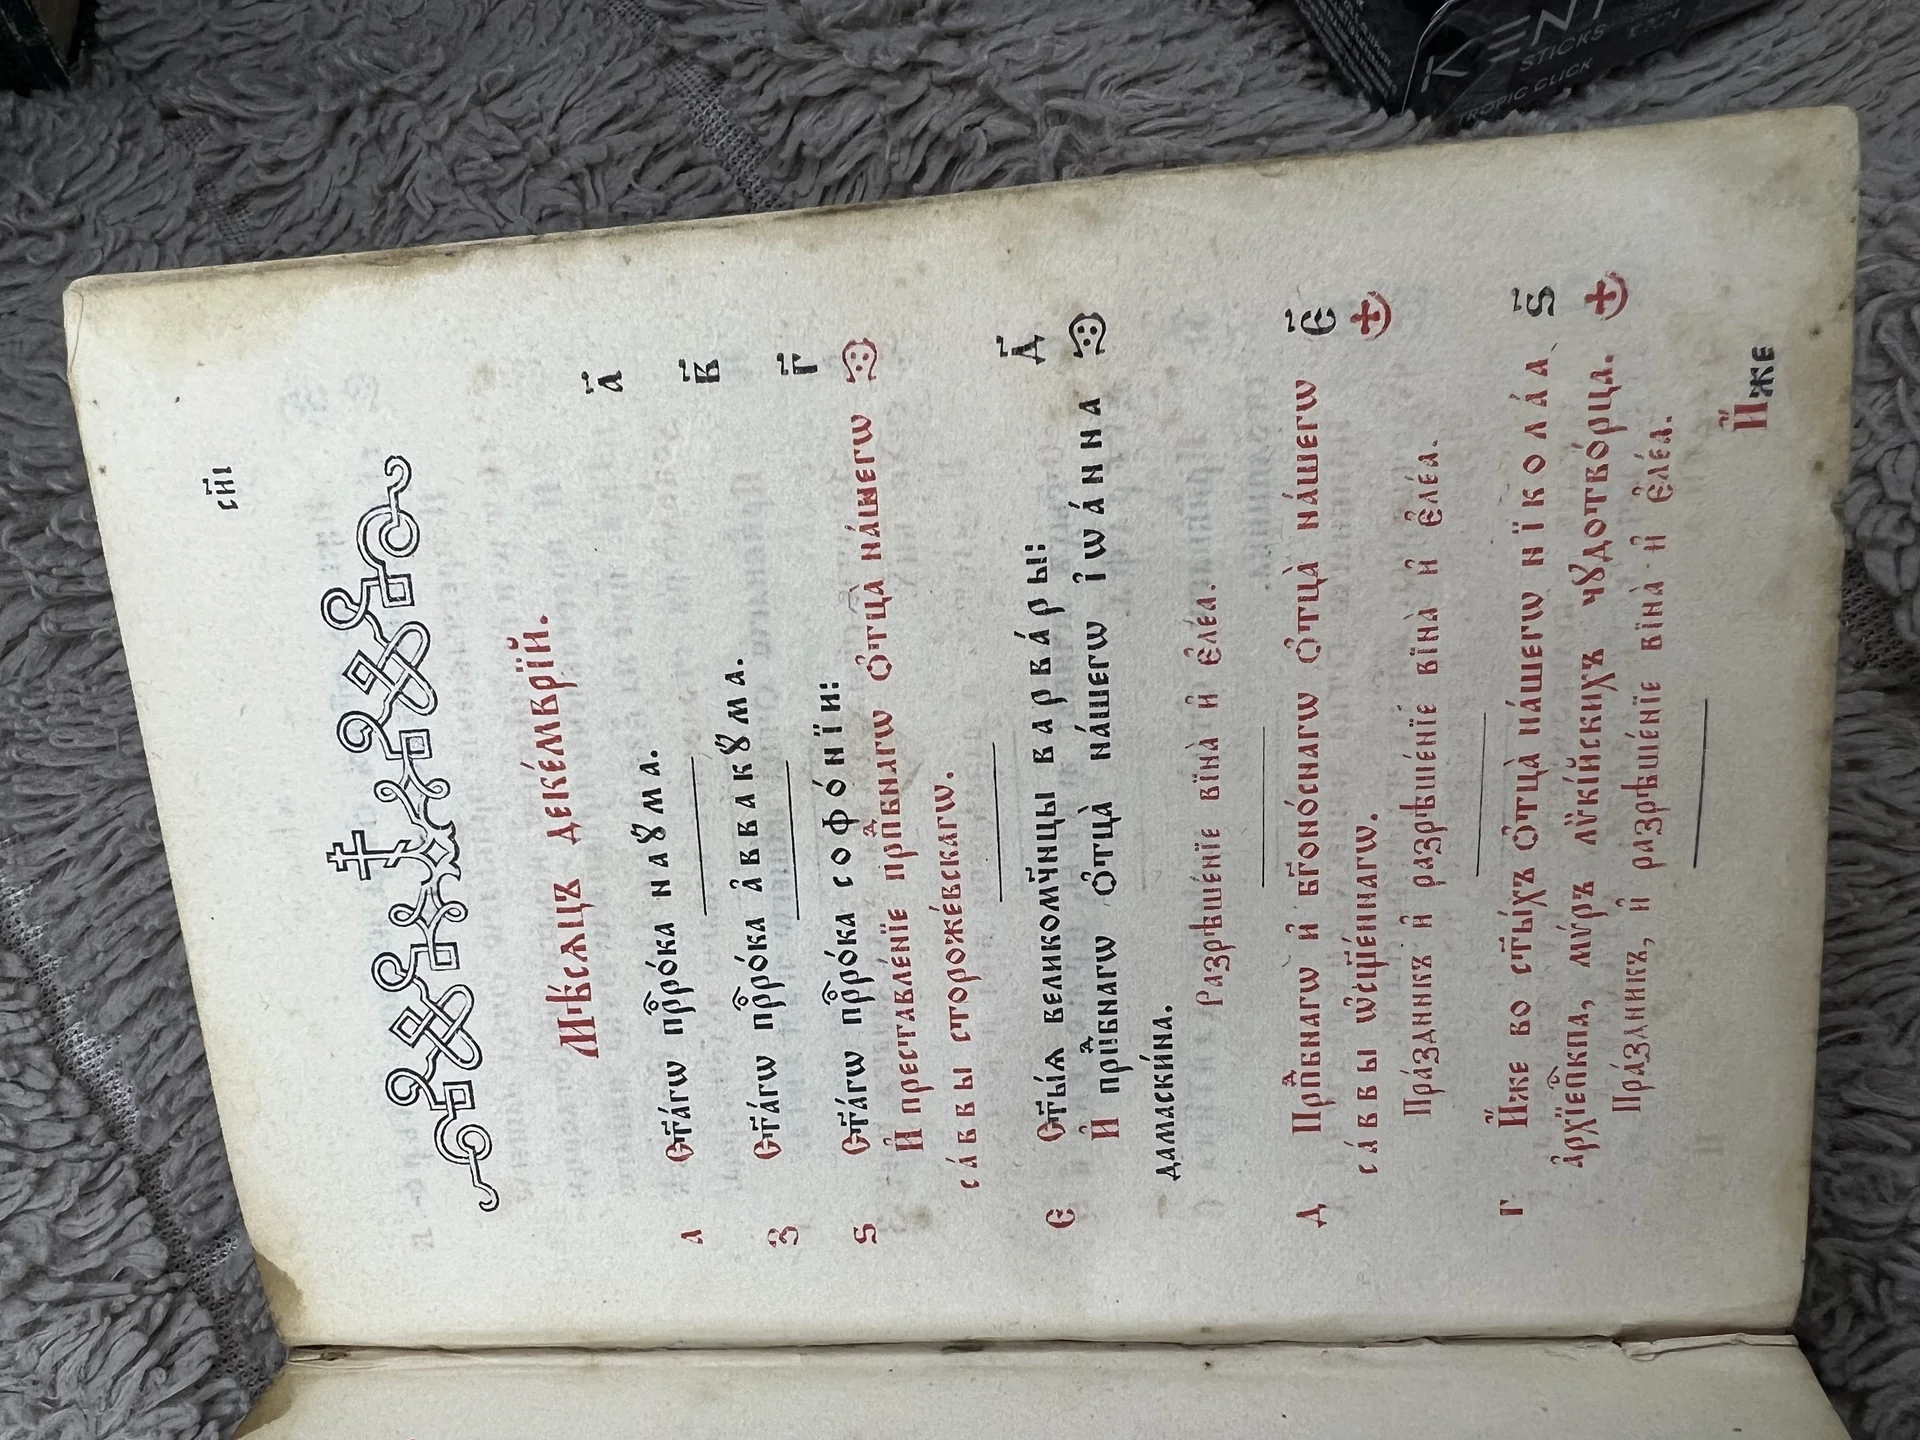 сн҃і
Мѣ́сѧцъ деке́мврїй.
а Ст҃а́гѡ прⷪ҇ро́ка наꙋ́ма. а҃
з Ст҃а́гѡ прⷪ҇ро́ка а҆ввакꙋ́ма. в҃
ѕ Ст҃а́гѡ прⷪ҇ро́ка софо́нїи: г҃
И҆ преставле́нїе прпⷣбнагѡ О҆тца̀ на́шегѡ
са́ввы стороже́вскагѡ.
є Ст҃ы́ѧ великомч҃ницы варва́ры: д҃
И҆ прпⷣбнагѡ О҆тца̀ на́шегѡ і҆ѡа́нна
дамаски́на.
Разрѣше́нїе вїна̀ и҆ є҆ле́а.
д Прпⷣбнагѡ и҆ бг҃оно́снагѡ О҆тца̀ на́шегѡ є҃
са́ввы ѡ҆сщ҃е́ннагѡ.
Пра́здникъ и҆ разрѣше́нїе вїна̀ и҆ є҆ле́а.
г И҆́же во ст҃ы́хъ О҆тца̀ на́шегѡ нїкола́а ѕ҃
а҆рхїепⷭ҇кпа, мѵ́ръ лѷкі́йскихъ чꙋдотво́рца.
Пра́здникъ, и҆ разрѣше́нїе вїна̀ и҆ є҆ле́а.
И҆́же
KENT
STICKS
TROPIC CLICK